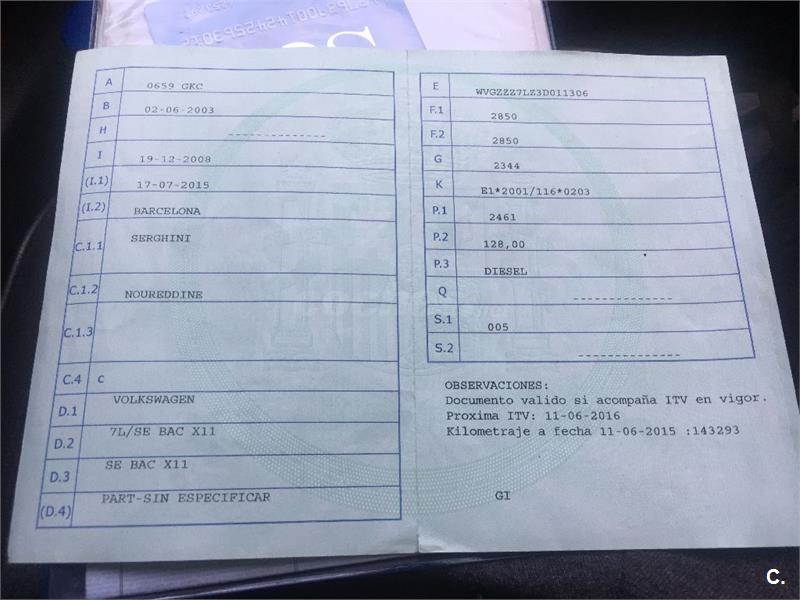 A 0659 GKC
B 02-06-2003
H --------------
I 19-12-2008
(I.1) 17-07-2015
(I.2) BARCELONA
C.1.1 SERGHINI
C.1.2 NOUREDDINE
C.1.3
C.4 C
D.1 VOLKSWAGEN
D.2 7L/SE BAC X11
D.3 SE BAC X11
(D.4) PART-SIN ESPECIFICAR
E WVGZZZ7LZ3D011306
F.1 2850
F.2 2850
G 2344
K E1*2001/116*0203
P.1 2461
P.2 128,00
P.3 DIESEL
Q --------------
S.1 005
S.2 --------------
OBSERVACIONES:
Documento valido si acompaña ITV en vigor.
Proxima ITV: 11-06-2016
Kilometraje a fecha 11-06-2015 :143293
GI
C.